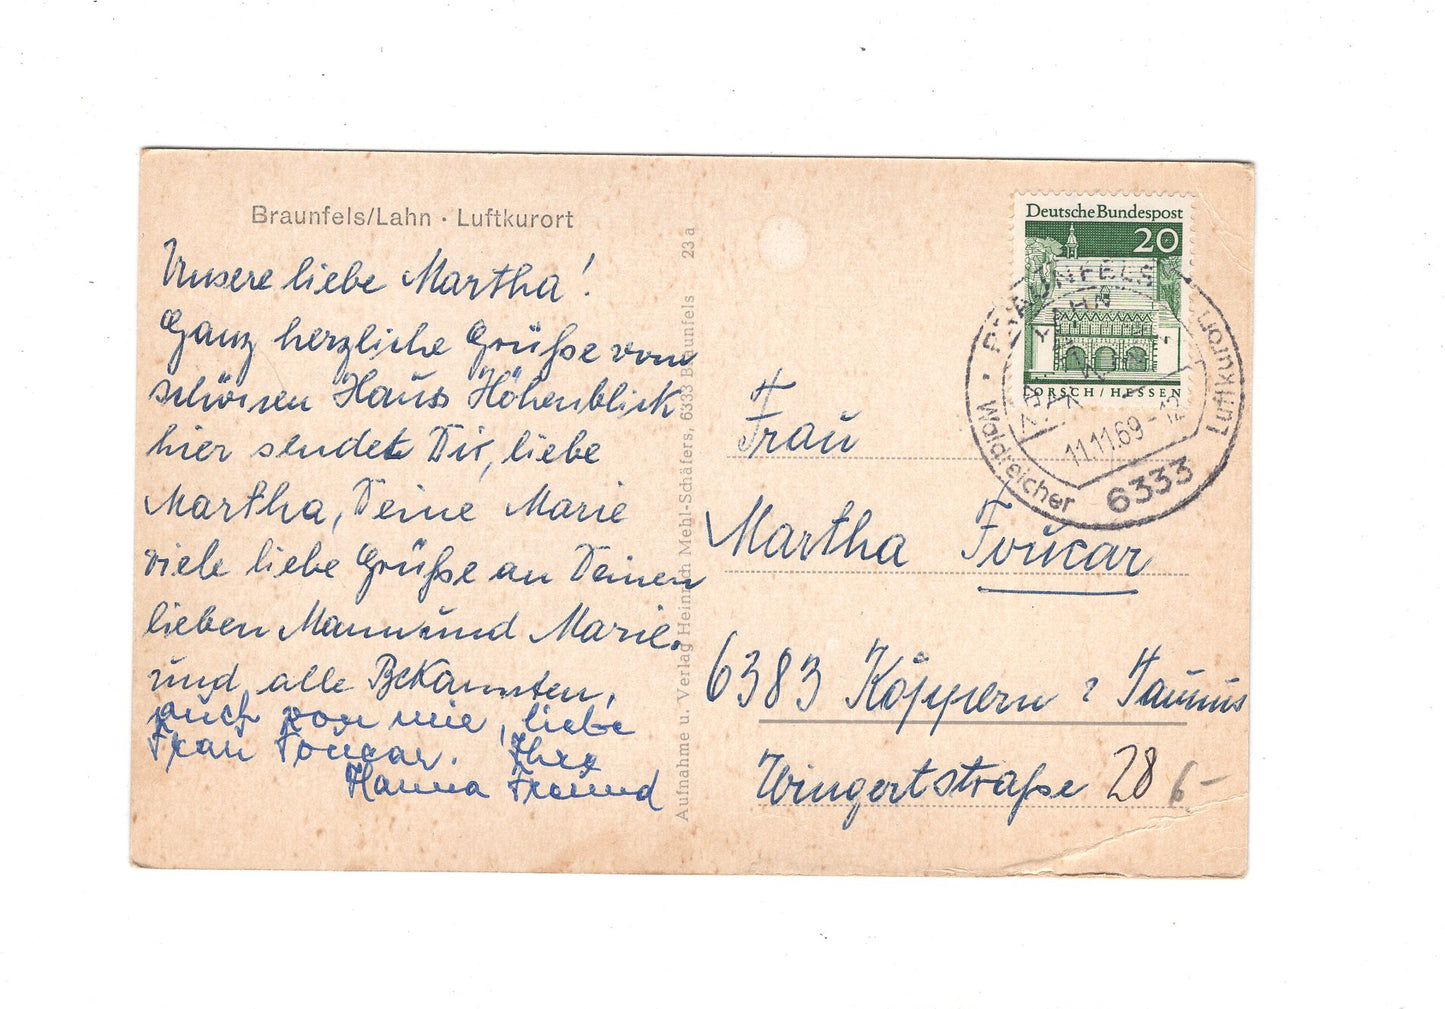 Braunfels/Lahn · Luftkurort
Unsere liebe Martha!
Ganz herzliche Grüße vom
schönen Haus Höhenblick
hier sendet Dir, liebe
Martha, Deine Marie
viele liebe Grüße an Deinen
lieben Mann und Marie.
und alle Bekannten,
auch von mir, liebe
Frau Foucar. Ihre
Hanna Freund
Aufnahme u. Verlag Heinrich Mehl-Schäfers, 6333 Braunfels 23 a
Deutsche Bundespost
20
LORSCH/HESSEN
BRAUNFELS
LAHN
11.11.69-12
6333
Waldreicher
Luftkurort
Frau
Martha Foucar
6383 Köppern : Taunus
Wingertstraße 28
6-